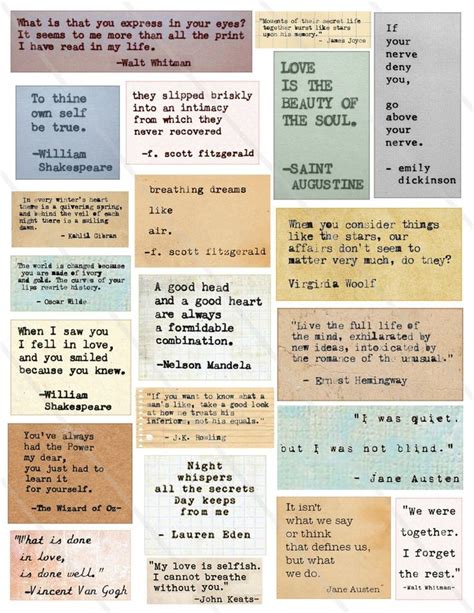 What is that you express in your eyes?
It seems to me more than all the print
I have read in my life.
-Walt Whitman
"Moments of their secret life
together burst like stars
upon his memory."
- James Joyce
If
your
nerve
deny
you,
go
above
your
nerve.
- emily
dickinson
LOVE
IS THE
BEAUTY OF
THE SOUL.
-SAINT
AUGUSTINE
To thine
own self
be true.
-William
Shakespeare
they slipped briskly
into an intimacy
from which they
never recovered
-f. scott fitzgerald
breathing dreams
like
air.
-f. scott fitzgerald
In every winter's heart
there is a quivering spring,
and behind the veil of each
night there is a smiling
dawn.
- Kahlil Gibran
When you consider things
like the stars, our
affairs don't seem to
matter very much, do they?
Virginia Woolf
The world is changed because
you are made of ivory
and gold. The curve of your
lips rewrite history.
- Oscar Wilde
A good head
and a good heart
are always
a formidable
combination.
-Nelson Mandela
When I saw you
I fell in love,
and you smiled
because you knew.
-William
Shakespeare
"Live the full life of
the mind, exhilarated by
new ideas, intoxicated by
the romance of the unusual."
- Ernest Hemingway
"If you want to know what a
man's like, take a good look
at how he treats his
inferiors, not his equals."
- J.K. Rowling
"I was quiet,
but I was not blind."
- Jane Austen
You've always
had the Power
my dear,
you just had to
learn it
for yourself.
-The Wizard of Oz-
Night
whispers
all the secrets
Day keeps
from me
- Lauren Eden
"What is done
in love,
is done well."
-Vincent Van Gogh
"My love is selfish.
I cannot breathe
without you."
-John Keats-
It isn't
what we say
or think
that defines us,
but what
we do.
Jane Austen
"We were
together.
I forget
the rest."
-Walt Whitman-